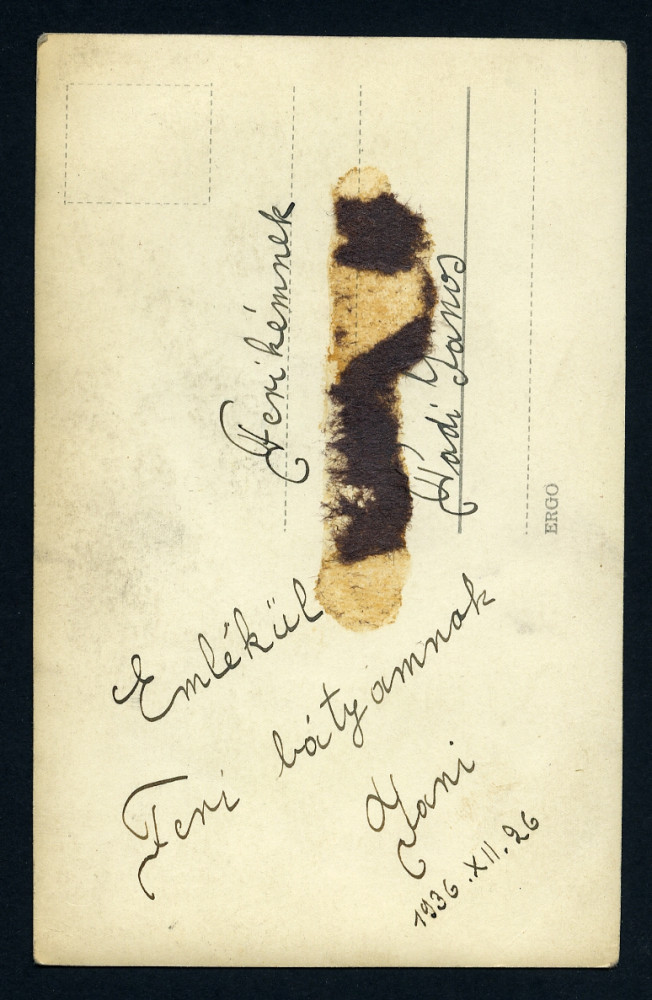 Emlékül
Feri bátyamnak
Jani
1936.XII.26
Ferikémnek
Vadi Janos
ERGO